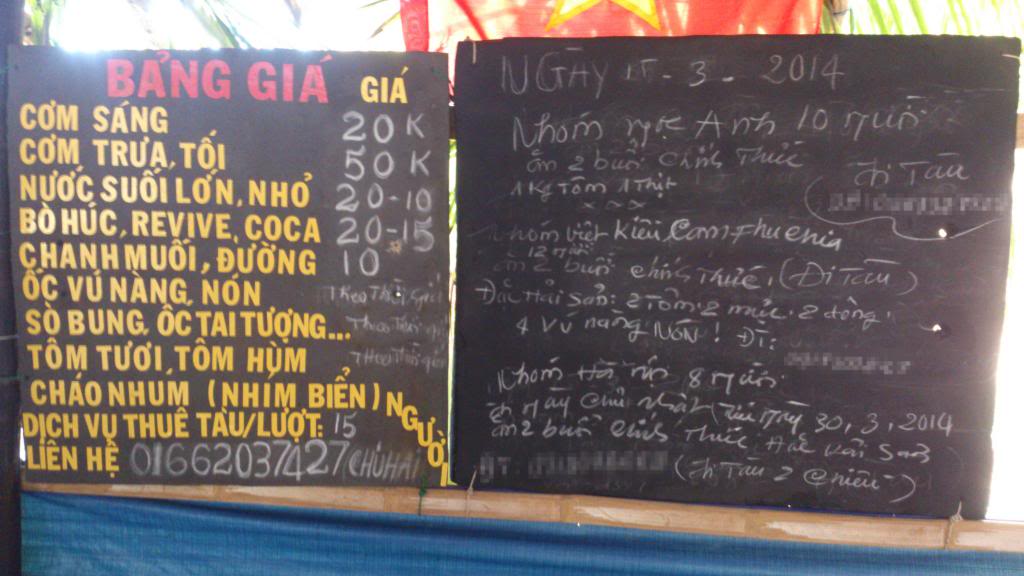 BẢNG GIÁ GIÁ
CƠM SÁNG 20 K
CƠM TRƯA, TỐI 50 K
NƯỚC SUỐI LỚN, NHỎ 20-10
BÒ HÚC, REVIVE, COCA 20-15
CHANH MUỐI, ĐƯỜNG 10
ỐC VÚ NÀNG, NÓN Theo Thời giá
SÒ BUNG, ỐC TAI TƯỢNG... Theo Thời giá
TÔM TƯƠI, TÔM HÙM Theo Thời giá
CHÁO NHUM (NHÍM BIỂN)
DỊCH VỤ THUÊ TÀU/LƯỢT: 15 NGƯỜI
LIÊN HỆ 01662037427 (CHÚ HAI
NGÀY 15 - 3 - 2014
Nhóm Anh 10 người
ăn 2 buổi Chính Thức
1 Kg Tôm 1 Thịt
Đi Tàu
Nhóm việt Kiều Camphuchia
12 người
ăn 2 buổi chính Thức, (Đi Tàu)
Đặc Hải Sản: 2 Tôm. 2 mực. 2
4 Vú nàng NÓN! ĐT:
Nhóm 8 người
ngày Chủ nhật 30, 3, 2014
ăn 2 buổi Chính Thức Hải Sản
ĐT: (Đi Tàu 2 chiều)